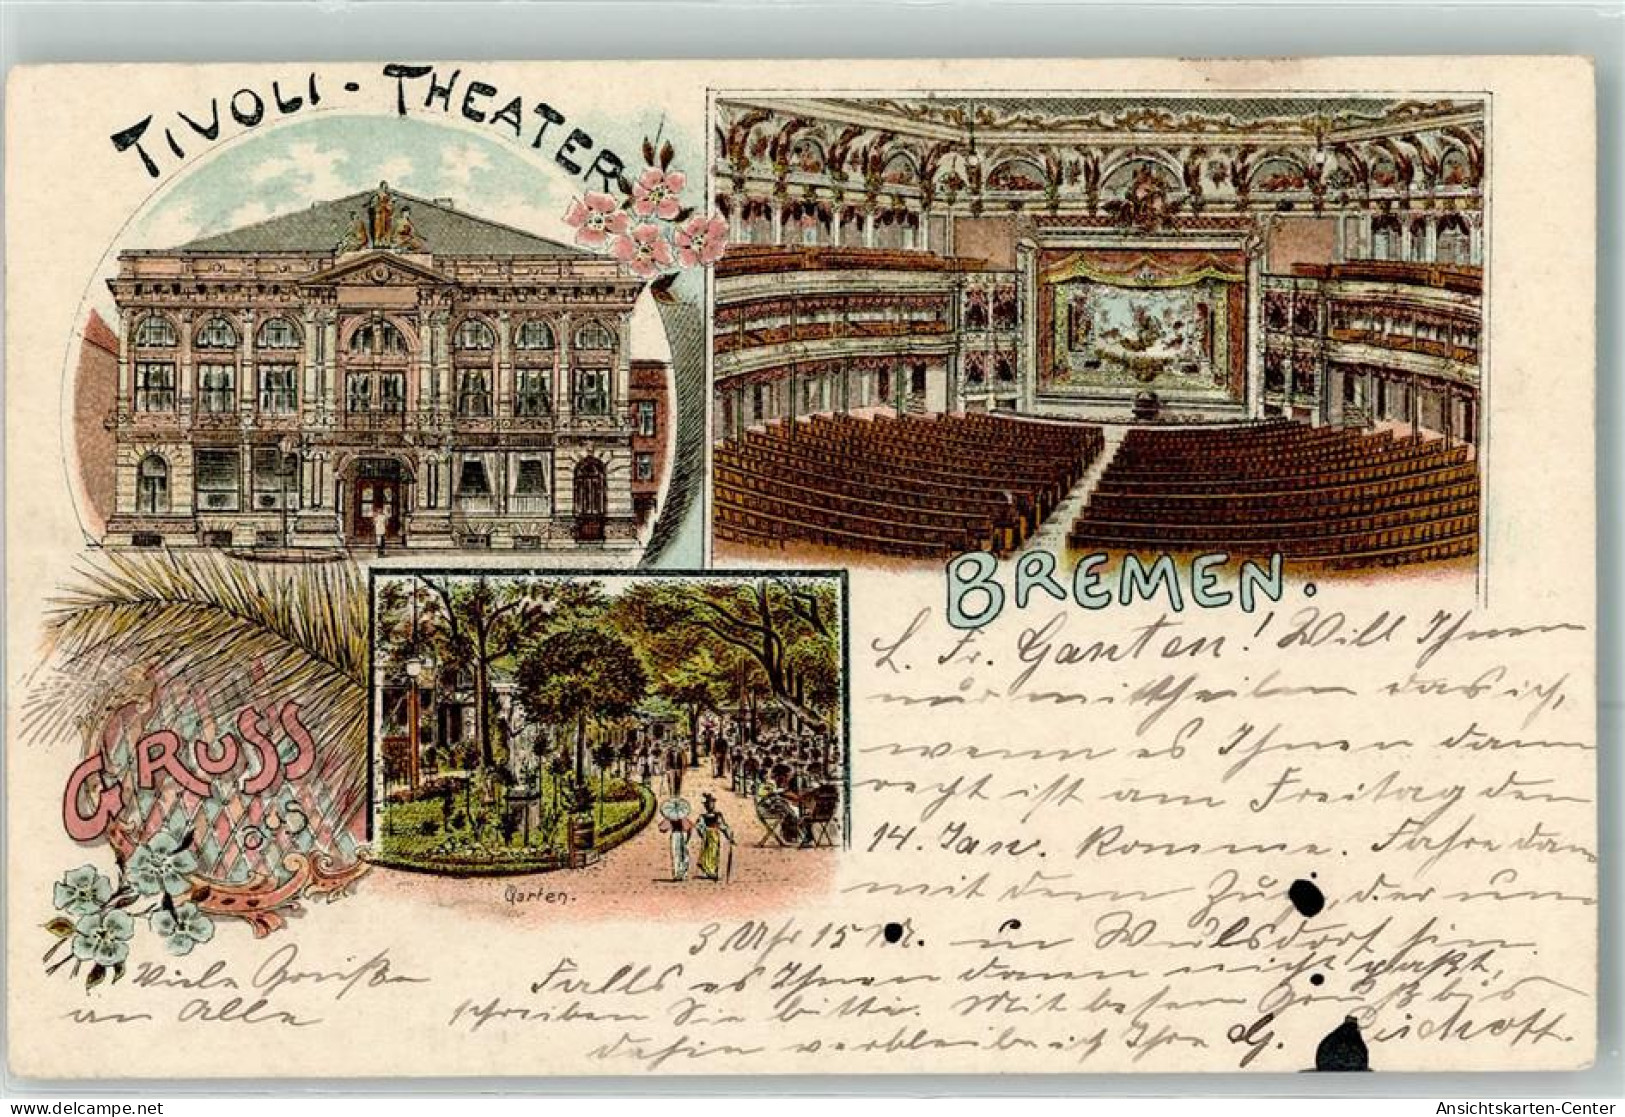 TIVOLI - THEATER
BREMEN.
GRUSS
aus
Garten.
L. Fr. Ganten! Will Ihnen
nur mittheilen das ich,
wenn es Ihnen dann
recht ist am Freitag den
14. Jan. komme. Fahre dann
mit dem Zug, der um
3 Uhr 15 M. in Wulsdorf
Falls es Ihnen dann nicht paßt,
schreiben Sie bitte. Mit bestem Gruß bis
dahin verbleibe ich Ihre G.
Viele Grüße
an Alle
Ansichtskarten-Center